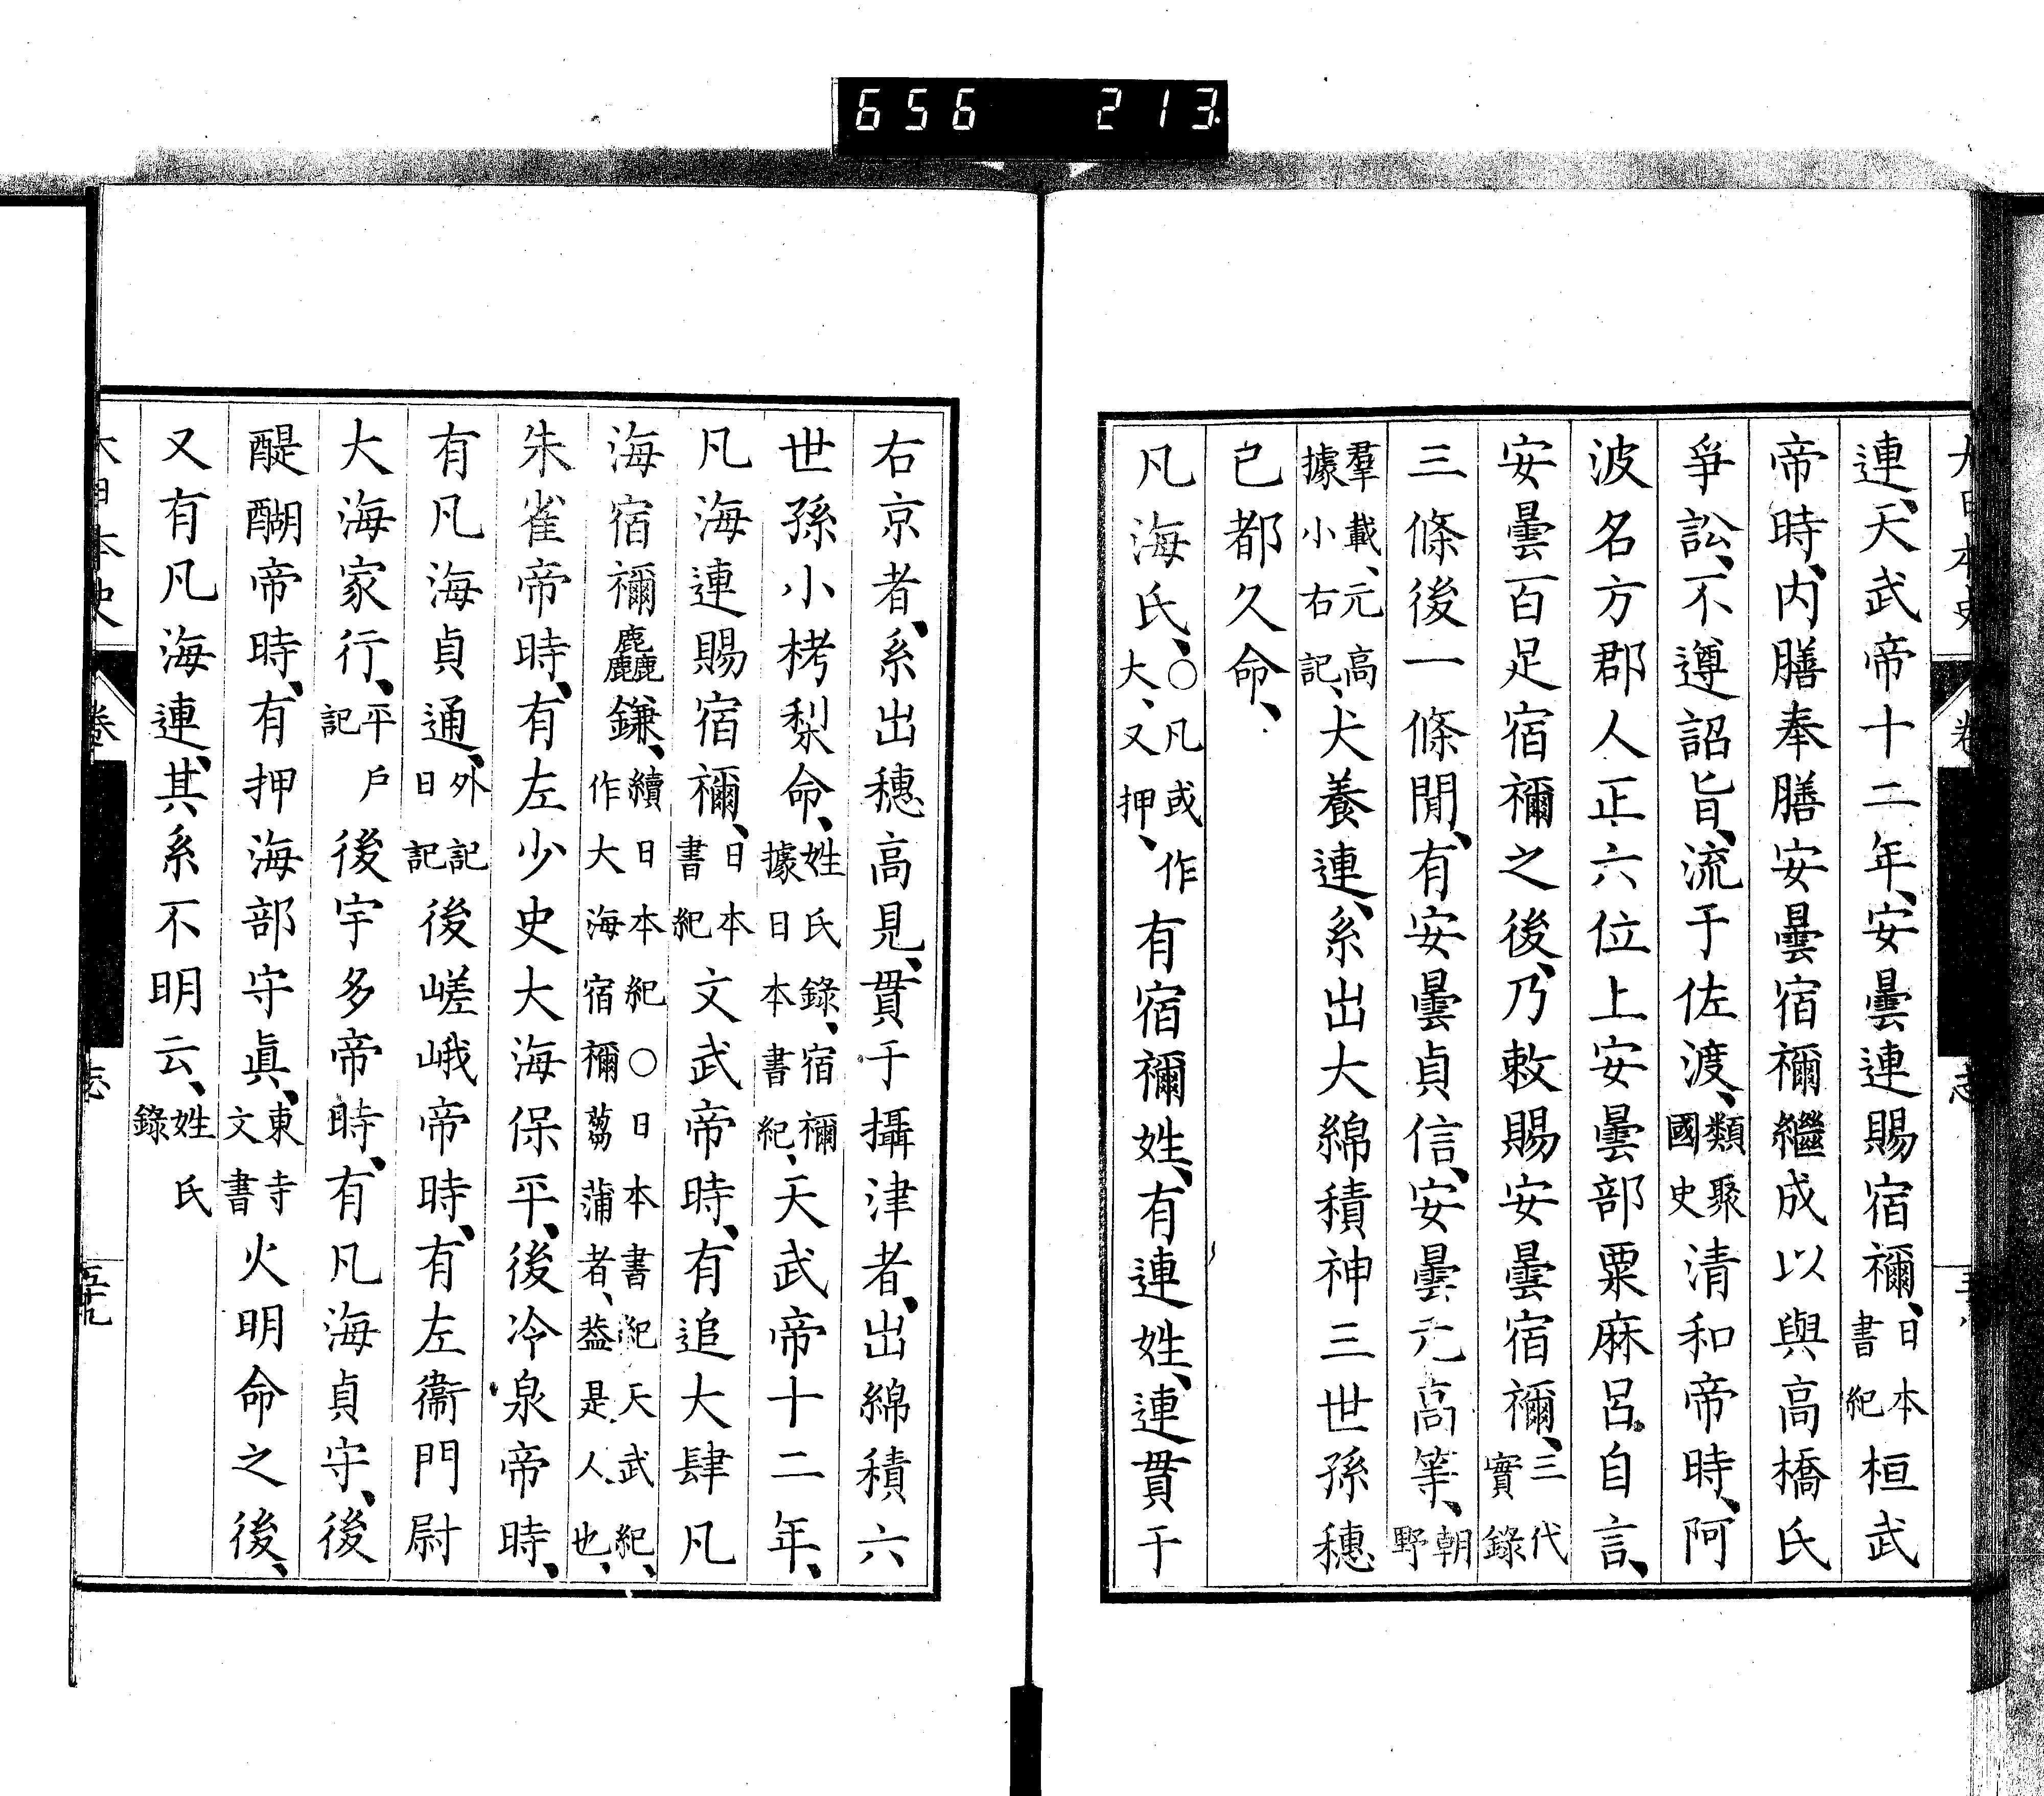 656 213
連、天武帝十二年、安曇連賜宿禰、日本書紀桓武
帝時、内膳奉膳安曇宿禰繼成以與高橋氏
爭訟、不遵詔旨、流于佐渡、類聚國史清和帝時、阿
波名方郡人正六位上安曇部粟麻呂、自言、
安曇百足宿禰之後、乃敕賜安曇宿禰、三代實錄
三條後一條閒、有安曇貞信、安曇元高等、朝野
羣載、元高據小右記、犬養連、系出大綿積神三世孫穗
已都久命、
凡海氏、○凡或作大、又押、有宿禰姓、有連姓、連貫于
右京者、系出穗高見、貫于攝津者、出綿積六
世孫小栲梨命、姓氏錄、宿禰據日本書紀、天武帝十二年、
凡海連賜宿禰、日本書紀文武帝時、有追大肆凡
海宿禰麤鎌、續日本紀○日本書紀天武紀、作大海宿禰蒭蒲者、葢是人也、
朱雀帝時、有左少史大海保平、後冷泉帝時、
有凡海貞通、外記日記後嵯峨帝時、有左衞門尉
大海家行、平戶記後宇多帝時、有凡海貞守、後
醍醐帝時、有押海部守眞、東寺文書火明命之後、
又有凡海連、其系不明云、姓氏錄
大日本史 卷 志 五十九